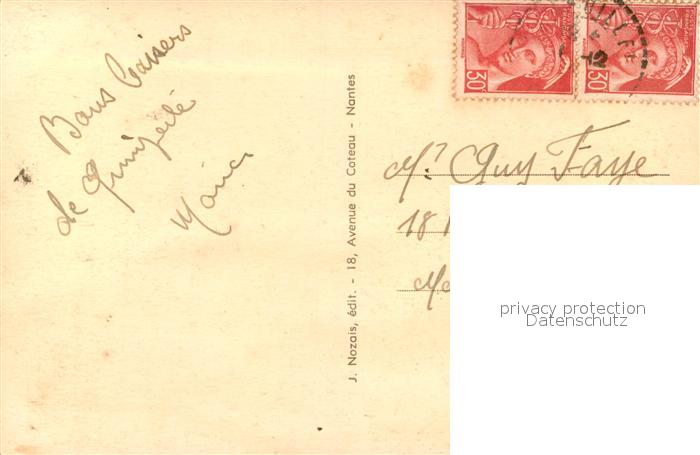 Bons baisers
de Quimperlé
J. Nozais, édit. - 18, Avenue du Coteau - Nantes
30
30
12
Mr Guy Faye
18
privacy protection
Datenschutz